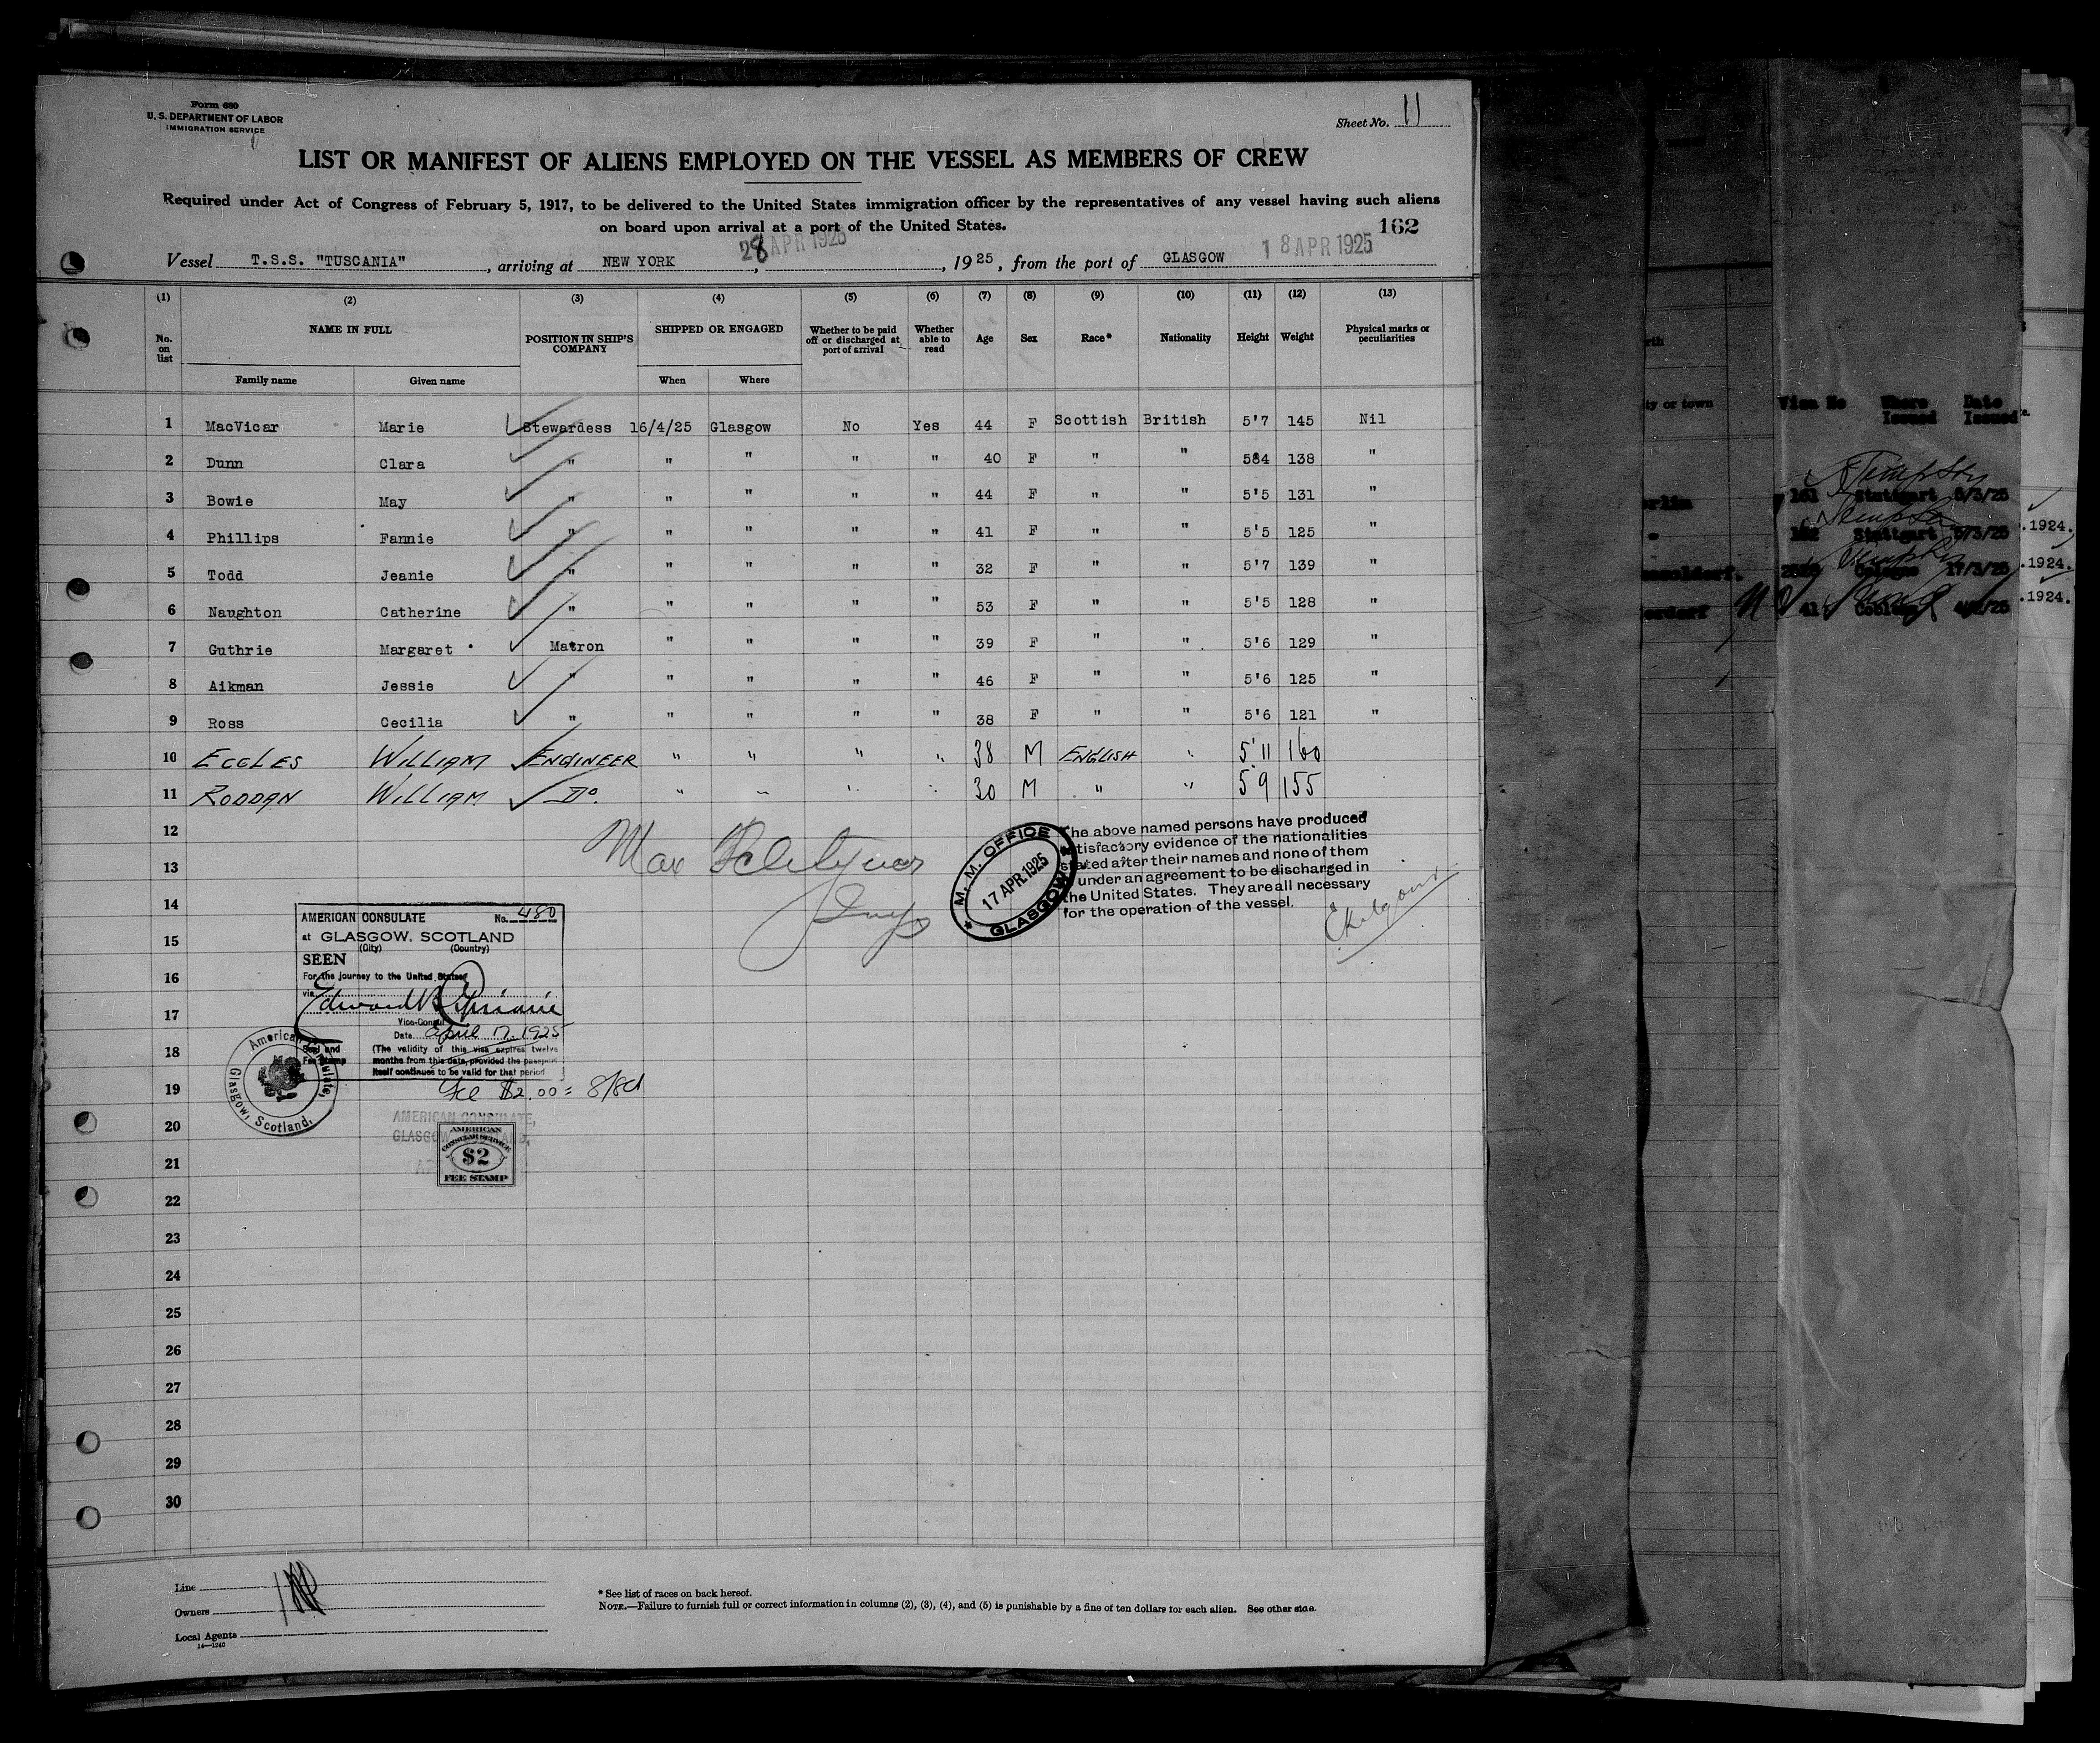 Form 680
U. S. DEPARTMENT OF LABOR
IMMIGRATION SERVICE
Sheet No. 11
LIST OR MANIFEST OF ALIENS EMPLOYED ON THE VESSEL AS MEMBERS OF CREW
Required under Act of Congress of February 5, 1917, to be delivered to the United States immigration officer by the representatives of any vessel having such aliens
on board upon arrival at a port of the United States.
162
28 APR 1925
18 APR 1925
Vessel T.S.S. "TUSCANIA", arriving at NEW YORK, , 1925, from the port of GLASGOW
(1) (2) (3) (4) (5) (6) (7) (8) (9) (10) (11) (12) (13)
No. on list NAME IN FULL POSITION IN SHIP'S COMPANY SHIPPED OR ENGAGED Whether to be paid off or discharged at port of arrival Whether able to read Age Sex Race* Nationality Height Weight Physical marks or peculiarities
Family name Given name When Where
1 MacVicar Marie Stewardess 16/4/25 Glasgow No Yes 44 F Scottish British 5'7 145 Nil
2 Dunn Clara " " " " " 40 F " " 584 138 "
3 Bowie May " " " " " 44 F " " 5'5 131 "
4 Phillips Fannie " " " " " 41 F " " 5'5 125 "
5 Todd Jeanie " " " " " 32 F " " 5'7 139 "
6 Naughton Catherine " " " " " 53 F " " 5'5 128 "
7 Guthrie Margaret Matron " " " " 39 F " " 5'6 129 "
8 Aikman Jessie " " " " " 46 F " " 5'6 125 "
9 Ross Cecilia " " " " " 38 F " " 5'6 121 "
10 ECCLES WILLIAM ENGINEER " " " " 38 M ENGLISH " 5'11 160
11 RODDAN WILLIAM Do. " " " " 30 M " " 5 9 155
12
13
14
15
16
17
18
19
20
21
22
23
24
25
26
27
28
29
30
M. M. OFFICE
17 APR. 1925
GLASGOW
The above named persons have produced
satisfactory evidence of the nationalities
stated after their names and none of them
under an agreement to be discharged in
the United States. They are all necessary
for the operation of the vessel.
AMERICAN CONSULATE No. 480
at GLASGOW, SCOTLAND
(City) (Country)
SEEN
For the journey to the United States
via
Edward
Vice-Consul
Date April 17, 1925
Seal and
Fee Stamp
(The validity of this visa expires twelve
months from this date, provided the passport
itself continues to be valid for that period
Fee $2.00 = 8/8d
American Consulate,
Glasgow, Scotland.
AMERICAN CONSULATE,
GLASGOW
AMERICAN
CONSULAR SERVICE
$2
FEE STAMP
Line
Owners
Local Agents
14—1240
* See list of races on back hereof.
NOTE.—Failure to furnish full or correct information in columns (2), (3), (4), and (5) is punishable by a fine of ten dollars for each alien. See other side.
ty or town
Visa No Where Issued Date Issued
161 Stuttgart 5/3/25
162 Stuttgart 5/3/25
.1924.
Cologne 17/3/25
.1924.
41 Coblenz
.1924.